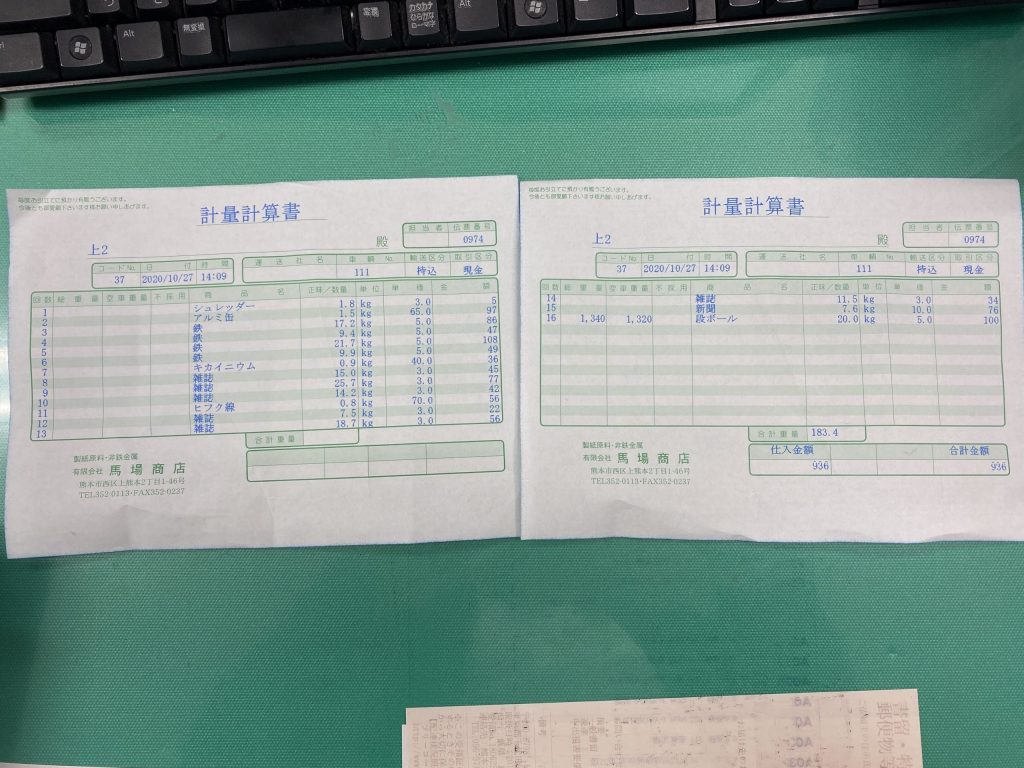 Alt
無変換
変換
カタカナ
ひらがな
ローマ字
Alt
毎度お引立てに預かり有難うございます。
今後とも御愛顧下さいます様お願い申しあげます。
計量計算書
上2 殿
担当者 伝票番号
0974
コードNo. 日付 時間
37 2020/10/27 14:09
運送社名 車輌No. 輸送区分 取引区分
111 持込 現金
回数 総重量 空車重量 不採用 商品名 正味/数量 単位 単価 金額
1 シュレッダー 1.8 kg 3.0 5
2 アルミ缶 1.5 kg 65.0 97
3 鉄 17.2 kg 5.0 86
4 鉄 9.4 kg 5.0 47
5 鉄 21.7 kg 5.0 108
6 鉄 9.9 kg 5.0 49
7 キカイニウム 0.9 kg 40.0 36
8 雑誌 15.0 kg 3.0 45
9 雑誌 25.7 kg 3.0 77
10 雑誌 14.2 kg 3.0 42
11 ヒフク線 0.8 kg 70.0 56
12 雑誌 7.5 kg 3.0 22
13 雑誌 18.7 kg 3.0 56
合計重量
製紙原料・非鉄金属
有限会社 馬場商店
熊本市西区上熊本2丁目1-46号
TEL352-0113・FAX352-0237
毎度お引立てに預かり有難うございます。
今後とも御愛顧下さいます様お願い申しあげます。
計量計算書
上2 殿
担当者 伝票番号
0974
コードNo. 日付 時間
37 2020/10/27 14:09
運送社名 車輌No. 輸送区分 取引区分
111 持込 現金
回数 総重量 空車重量 不採用 商品名 正味/数量 単位 単価 金額
14 雑誌 11.5 kg 3.0 34
15 新聞 7.6 kg 10.0 76
16 1,340 1,320 段ボール 20.0 kg 5.0 100
合計重量 183.4
仕入金額 合計金額
936 936
製紙原料・非鉄金属
有限会社 馬場商店
熊本市西区上熊本2丁目1-46号
TEL352-0113・FAX352-0237